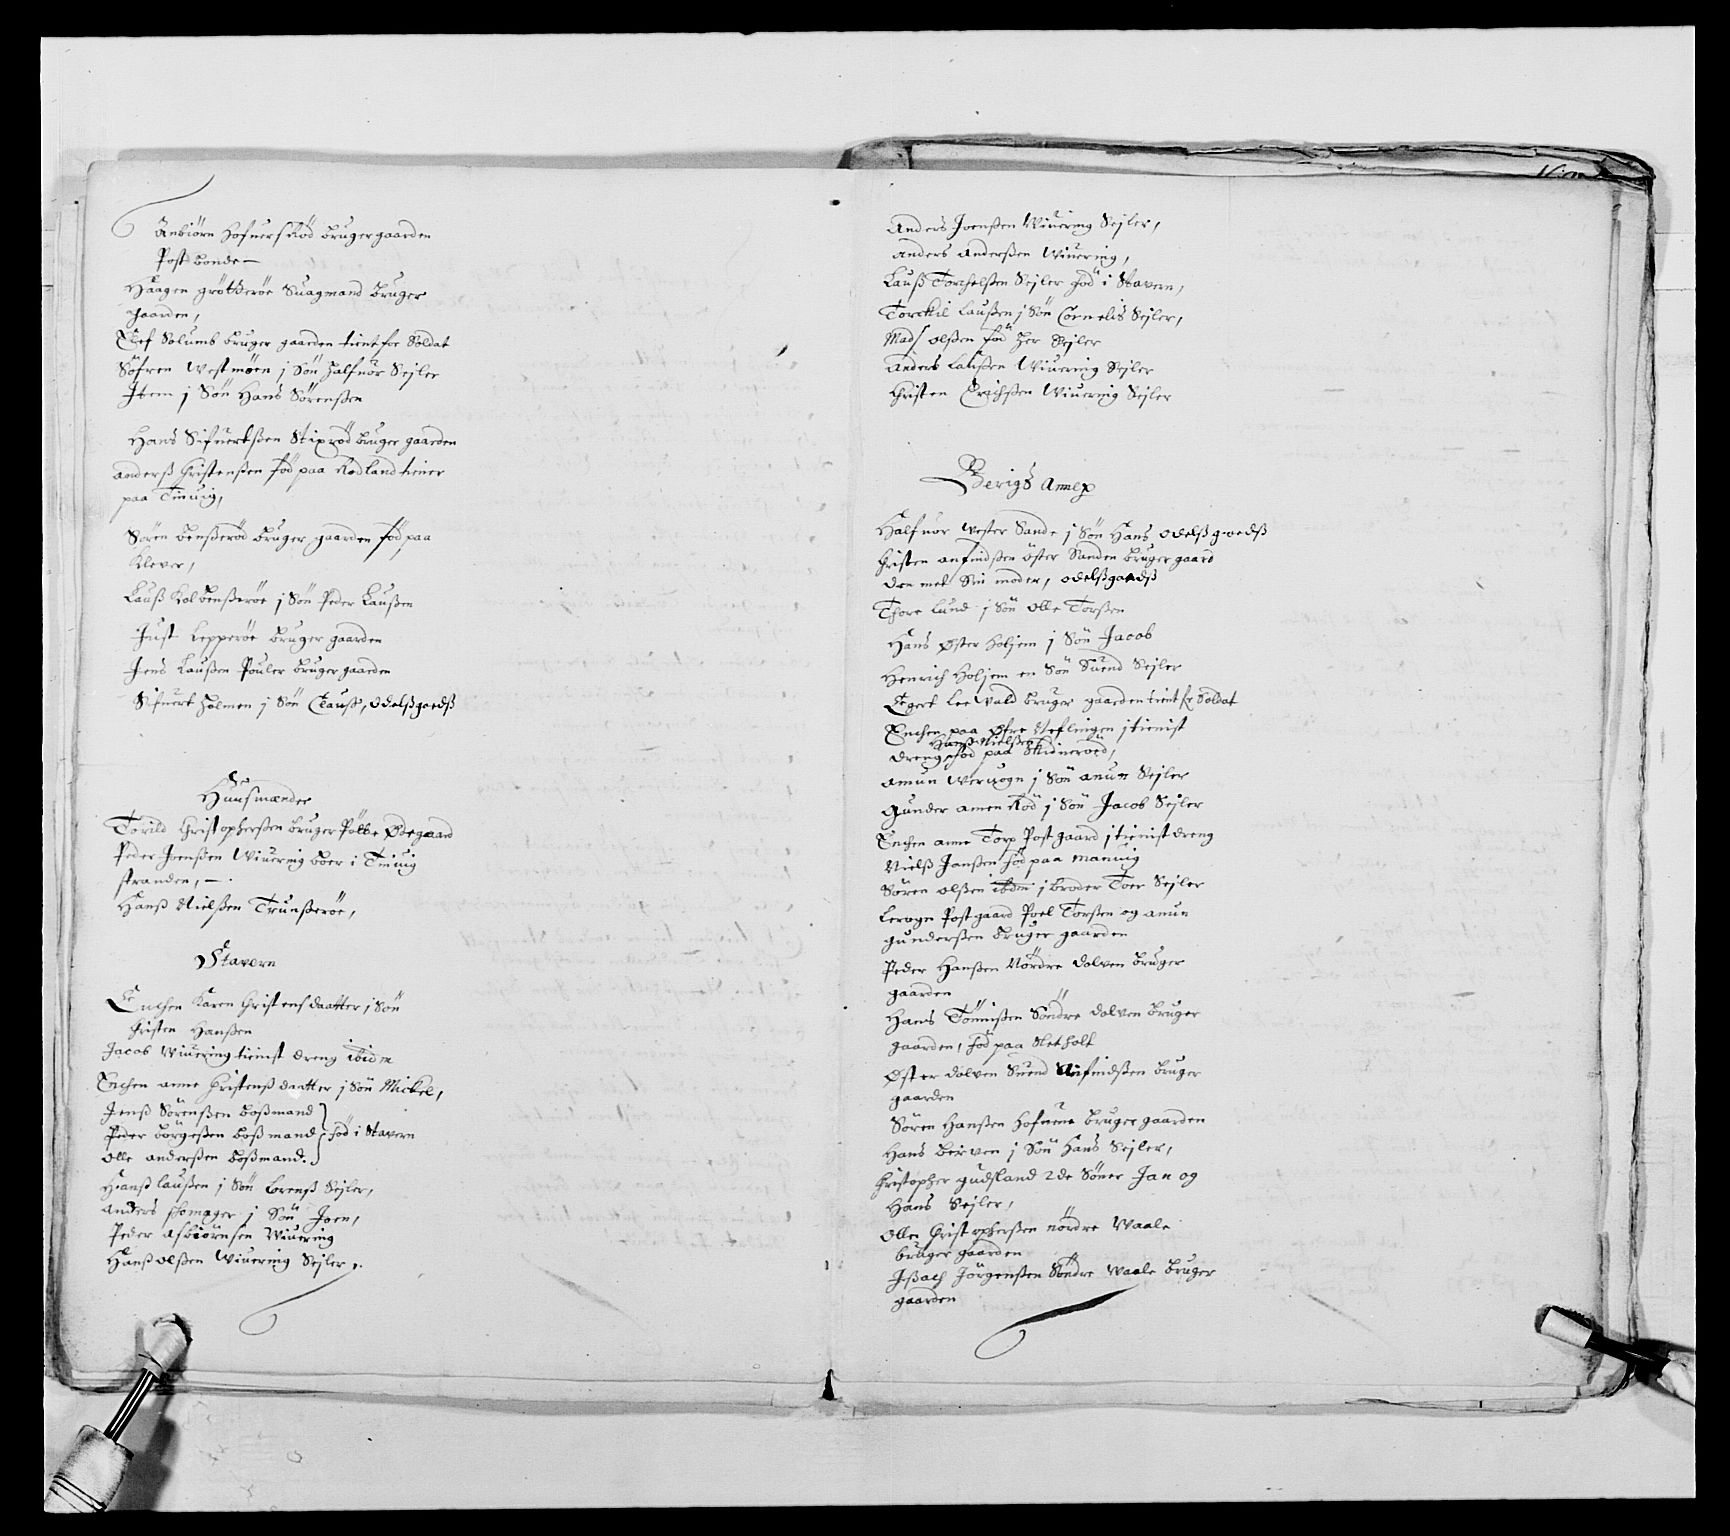 Anbiörn Hofuersröd bruger gaarden
Post bonde —
Haagen gröttteröe Suagmand bruger
gaarden,
Elef Solumb bruger gaarden tient for Soldat
Söfren Westmöen j Sön Halfuor Sejler
Item j Sön Hans Sörenßen
Hans Sifuertßen Stixrød bruger gaarden
anders Christenßen föd paa Rødland tiener
paa Tinuig,
Sören benßerød bruger gaarden föd paa
Klever,
Lauß Kolbenßeröe j Sön Peder Laußen
Just Lepperöe bruger gaarden
Jens Laußen Pouler bruger gaarden
Sifuert Holmen j Sön Clauß, Odelßgodß
Huusmænder
Torild Christopherßen bruger Pölke Ødegaard
Peder Joenßen Wiuering boer i Tinuig
stranden, — .
Hanß Nielßen Trunßeröe,
Stavern
Enchen Karen Christensdaatter j Sön
Christen Hanßen
Jacob Wiuering tienist dreng ibidm
Enchen anne Christenß daatter j Sön Mickel,
Jenß Sörenßen boßmand
Peder börgeßen boßmand föd i Stavern
Olle anderßen boßmand.
Hanß laußen j Sön Lorenß Sejler,
anders skomager j Sön Joen,
Peder asbiörnsen Wiuering
Hanß olßen Wiuering Sejler,.
Anders Joenßen Wiuering Sejler,
anders anderßen Wiuering,
Lauß Torchelßen Sejler föd i Stavern,
Torckil Laußen j Sön Cornelis Sejler,
Mads olßen föd her Sejler
anders Laußen Wiuering Sejler
Christen Erichßen Wiuering Sejler
Berigs Annex
Halfuor Wester Sande j Sön Hans Odelßgoedß
Christen anfindßen öster Sanden bruger gaard
den met Sin moder, Odelßgodß
Thore Lund j Sön Olle Torßen
Hans Øster Holjem j Sön Jacob
Henrich Holjem en Sön Suend Sejler
Egert Lee Wald bruger gaarden tient for Soldat
Enchen paa Øfre Neflingen j tienist
Hans Nielßen
dreng föd paa Skinneröed,
amun Weruogn j Sön anun Sejler
Gunder amen Röd j Sön Jacob Sejler
Enchen anne Torp Post gaard j tienist dreng
Nielß Janßen föd paa Manuig
Sören olßen ibdm j broder Toer Sejler
Lerogn Postgaard Poel Torsten og anun
gunderßen bruger gaarden
Peder Hanßen Nördre Dolven bruger
gaarden
Hans Tönnißen Söndre Dolven bruger
gaarden, föd paa Netholt
Øster Dolven Suend Anfindßen bruger
gaarden
Sören Hanßen Hofuene bruger gaarden
Hans berven j Sön Hans Sejler,
Christopher gudsland 2de Söner Jan og
Hans Sejler,
Olle Christopherßen nördre Waale
bruger gaarden
Jßach Jörgenßen Söndre Waale bruger
gaarden